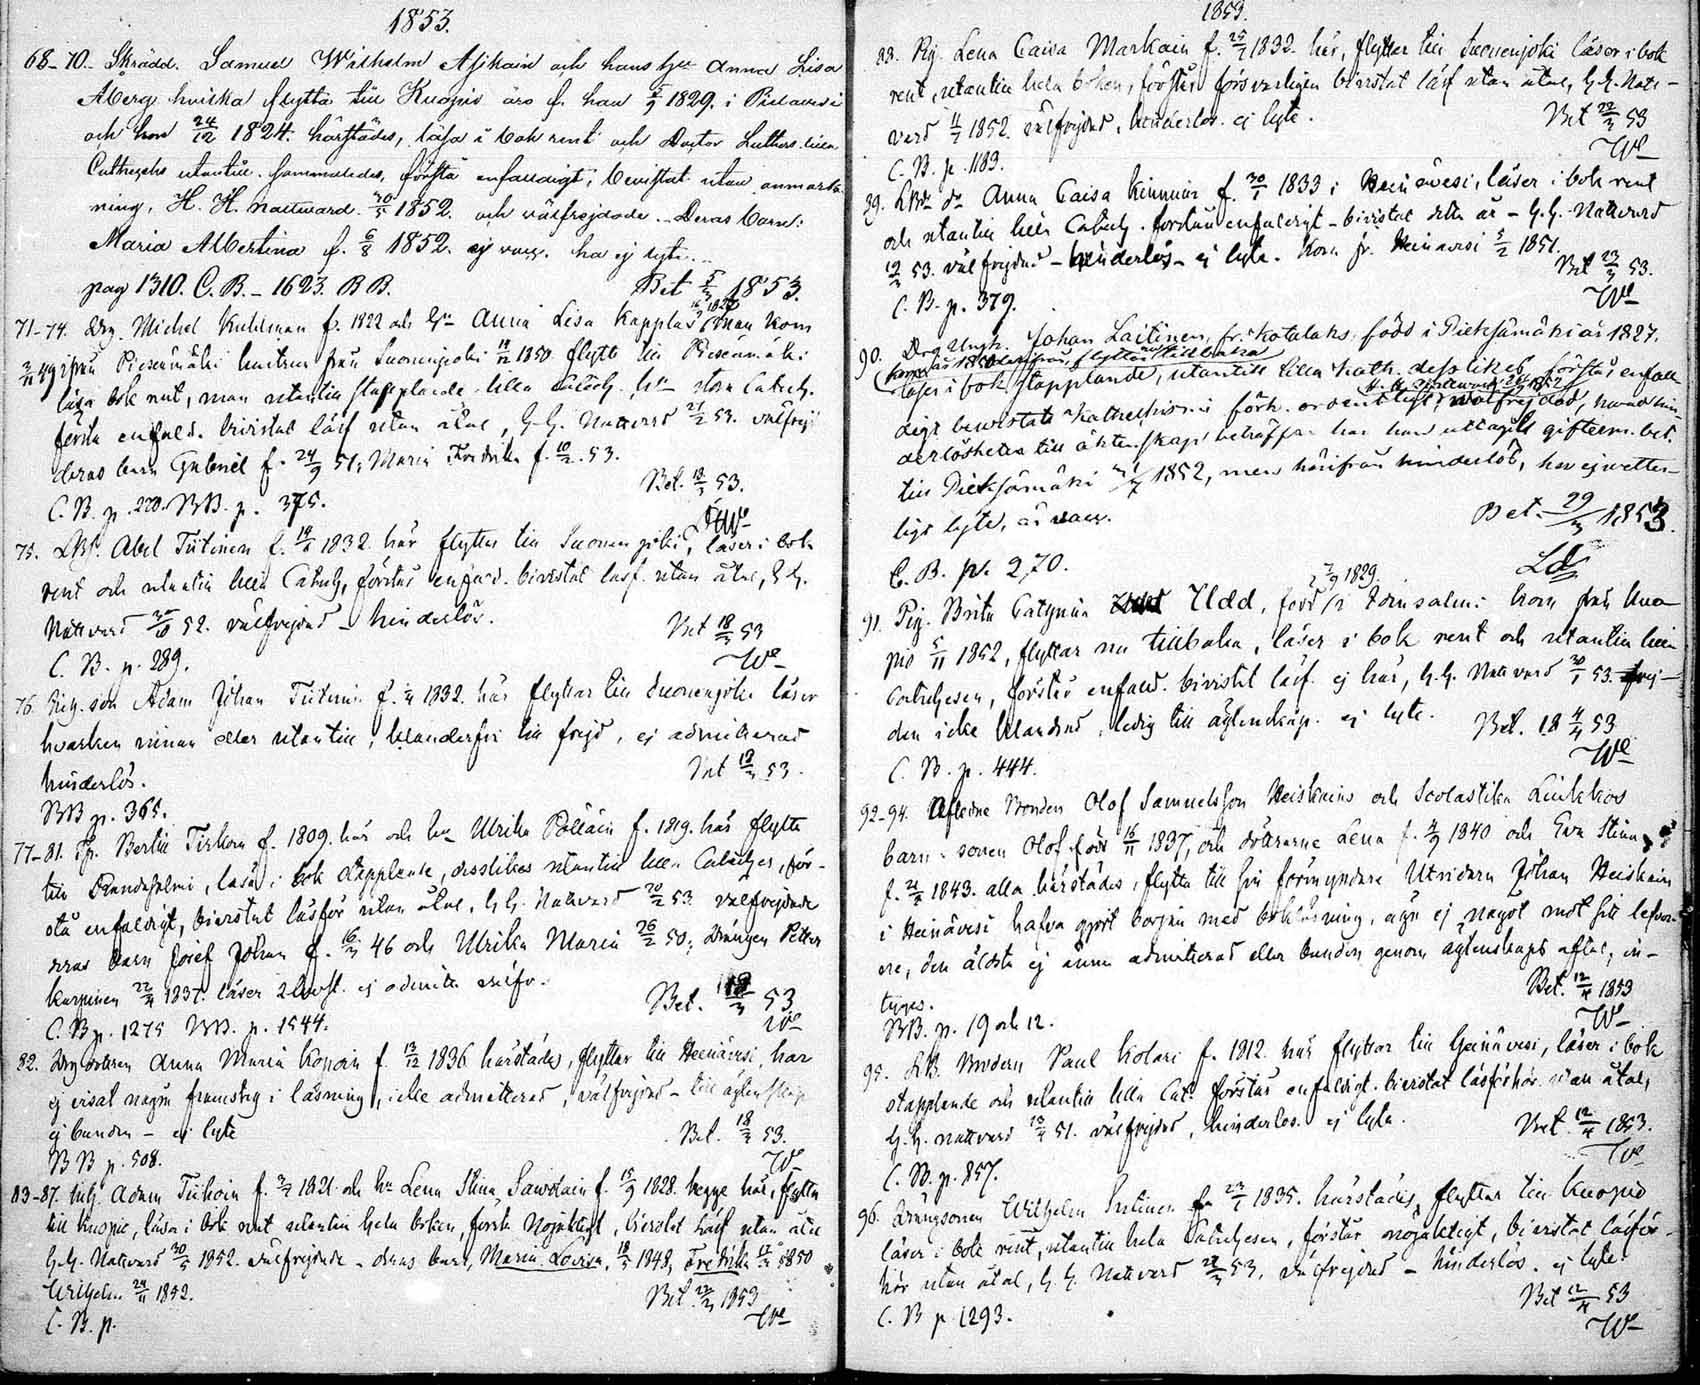 1853.
68-70. Skrädd. Samuel Wilhelm Asikain och hans hu Anna Lisa
Åberg hvilka flytta till Kuopio äro f. han 5/9 1829. i Pielavesi
och hon 24/12 1824. härstädes, läsa i bok rent och Doctor Luthers lilla
Catheches utantill. sammaledes, förstå enfaldigt, bevistat utan anmärk-
ning, H. H. nattvard 30/5 1852. och välfrejdade. Deras barn:
Maria Albertina f. 6/8 1852. ej vacc. ha ej lyte.
pag 1310. C. B. - 1623. B B. Bet 5/3 1853.
71-74. Drg. Michel Kuhlman f. 1822 och hu Anna Lisa Kapplas man kom
från Pieksämäki hustrun från Suonenjoki 1850 flytta till Pieksämäki
läsa i bok rent, man utantill stapplande lilla hu stora Catech.
förstå enfald. bivistat läsf utan åtal, H. H. Nattvard 53. välfrejd
deras barn Gabriel f. 24/9 51, Maria Fredrika f. 10/2 53.
C. B. p. 220. BB. p. 375. Bet. 18/3 53.
We
75. Abel Tiitinen f. 1832 här flyttar till Suonenjoki, läser i bok
rent och utantill lilla Catech, förstår enfald. bivistat läsf. utan åtal, H. H.
Nattvard 52. välfrejdad - hinderlös. Bet 18/3 53
C. B. p. 289. We
76. son Adam Johan Tiitinen f. 1832. här flyttar till Suonenjoki läser
hvarken innan eller utantill, klanderfri till frejd, ej admitterad
hinderlös. Bet 18/3 53.
BB p. 365.
77-81. Bertil Tirkon f. 1809. här och hu Ulrika Pöllän f. 1819. här flytta
till Randasalmi, läsa i bok stapplande, desslikes utantill lilla Cateches, för-
stå enfaldigt, bivistat läsför utan åtal, H. H. Nattvard 53 välfrejdade
deras barn Josef Johan f. 16/3 46 och Ulrika Maria 26/2 50; Drängen Petter
Karpinen 22/4 1837. läser ej admitt.
Bet. 18/3 53
C. B p. 1275 BB. p. 1544. We
82. Drg dottern Anna Maria Kopoin f. 13/12 1836 härstädes, flyttar till Heinävesi, har
ej visat några framsteg i läsning, icke admitterad, välfrejdad - till äktenskap
ej bunden - ej lyte Bet. 18/3 53.
BB p. 508. We
83-87. Adam Tiihoin f. 1821. och hu Lena Stina Sawolain f. 15/9 1828. begge här, flytta
till Kuopio, läsa i bok rent utantill hela boken, förstå nöjaktigt, bivistat läsf utan åtal
H. H. Nattvard 30/5 1852. välfrejdade - deras barn, Maria Lovisa, 18/5 1848, Fredrika 1850
Wilhelm 24/11 1852. Bet. 1853
C. B. p. We
1853.
88. Pig. Lena Caisa Markain f. 1832. här, flyttar till Suonenjoki läser i bok
rent, utantill hela boken, förstår försvarligen bivistat läsf utan åtal, H. H. Natt-
vard 1852. välfrejdad, hinderlös. ej lyte. Bet 22/3 53
C. B. p. 1183. We
89. Anna Caisa Kinnuin f. 30/1 1833 i Heinävesi, läser i bok rent
och utantill lilla Catech. förstår enfaldigt - bivistat detta år - H. H. Nattvard
53. välfrejdad - hinderlös - ej lyte. Kom fr. Heinävesi 5/2 1851.
C. B. p. 379. Bet 23/3 53.
We
90. Drg Johan Laitinen, född i Pieksämäki år 1827.
flyttar tillbaka
läser i bok stapplande, utantill lilla Kath. desslikes förstår enfal-
digt bewistat Katheckismi förh. ordentligt, wälfrejdad, hwad hin-
derlösheten till äktenskap beträffar har han uttagit giftesm. bet.
till Pieksämäki 1852, men härifrån hinderlös, har ej wetter-
ligt lyte, är vacc. Bet. 29/3 1853.
C. B. p. 270.
91. Pig. Brita Catarina Udd, född 1829 i Idensalmi kom från Kuo-
pio 5/11 1852, flyttar nu tillbaka, läser i bok rent och utantill lilla
Catechesen, förstår enfald. bivistat läsf. ej här, H. H. Nattvard 30/1 53. frej-
den icke klandrad, ledig till äktenskap. ej lyte. Bet. 4/4 53
C. B. p. 444. We
92-94. Aflidne Bonden Olof Samuelsson Heiskains och Scolastika Liukkos
barn: sonen Olof född 16/11 1837, och döttrarne Lena f. 4/9 1840 och Eva Stina
f. 1843. alla härstädes, flytta till sin förmyndare Johan Heiskain
i Heinävesi hafva gjort början med bokläsning, äga ej något mot sitt lefver-
ne, den äldsta ej ännu admitterad eller bunden genom äktenskaps aftal, in-
tyges. Bet. 12/4 1853
BB. p. 19 och 12. We
95. Bonden Paul Kolari f. 1812. här flyttar till Heinävesi, läser i bok
stapplande och utantill lilla Cat. förstår enfaldigt. bivistat läsförhör utan åtal,
H. H. nattvard 51. välfrejdad, hinderlös. ej lyte. Bet. 12/4 1853.
C. B. p. 857. We
96. Drängsonen Wilhelm f. 23/1 1835. härstädes, flyttar till Kuopio
läser i bok rent, utantill hela Catechesen, förstår nöjaktigt, bivistat läsför-
hör utan åtal, H. H. Nattvard 53, välfrejdad - hinderlös. ej lyte.
C. B p. 1293. Bet 12/4 53
We